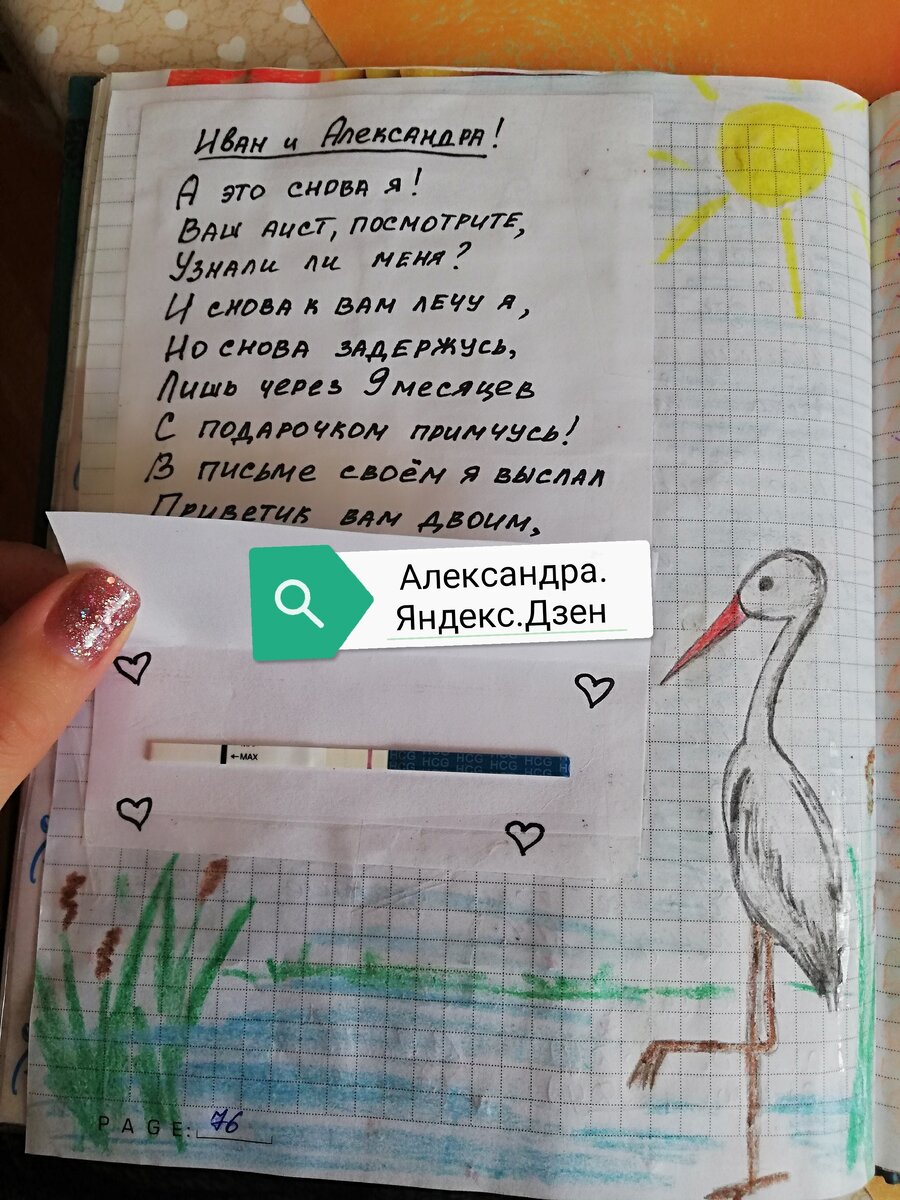 Иван и Александра!
А это снова я!
Ваш аист, посмотрите,
Узнали ли меня?
И снова к вам лечу я,
Но снова задержусь,
Лишь через 9 месяцев
С подарочком примчусь!
В письме своём я выслал
Приветик вам двоим,
Александра.
Яндекс.Дзен
←MAX
HCG HCG HCG HCG
HCG HCG HCG HCG
PAGE: 76